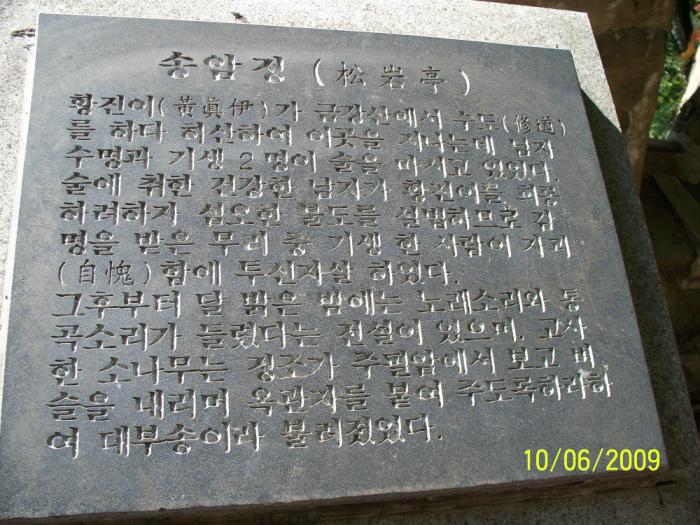 송암정 (松岩亭)
황진이(黃眞伊)가 금강산에서 수도(修道)
를 하다 하산하여 이곳을 지나는데 남자
수명과 기생 2명이 술을 마시고 있었다.
술에 취한 건강한 남자가 황진이를 희롱
하려하자 심오한 불도를 설법하므로 감
명을 받은 무리 중 기생 한 사람이 자괴
(自愧) 함에 투신자살 하였다.
그후부터 달 밝은 밤에는 노래소리와 통
곡소리가 들렸다는 전설이 있으며, 고사
한 소나무는 정조가 주필암에서 보고 벼
슬을 내리며 옥관자를 붙여 주도록하라하
여 대부송이라 불려졌었다.
10/06/2009